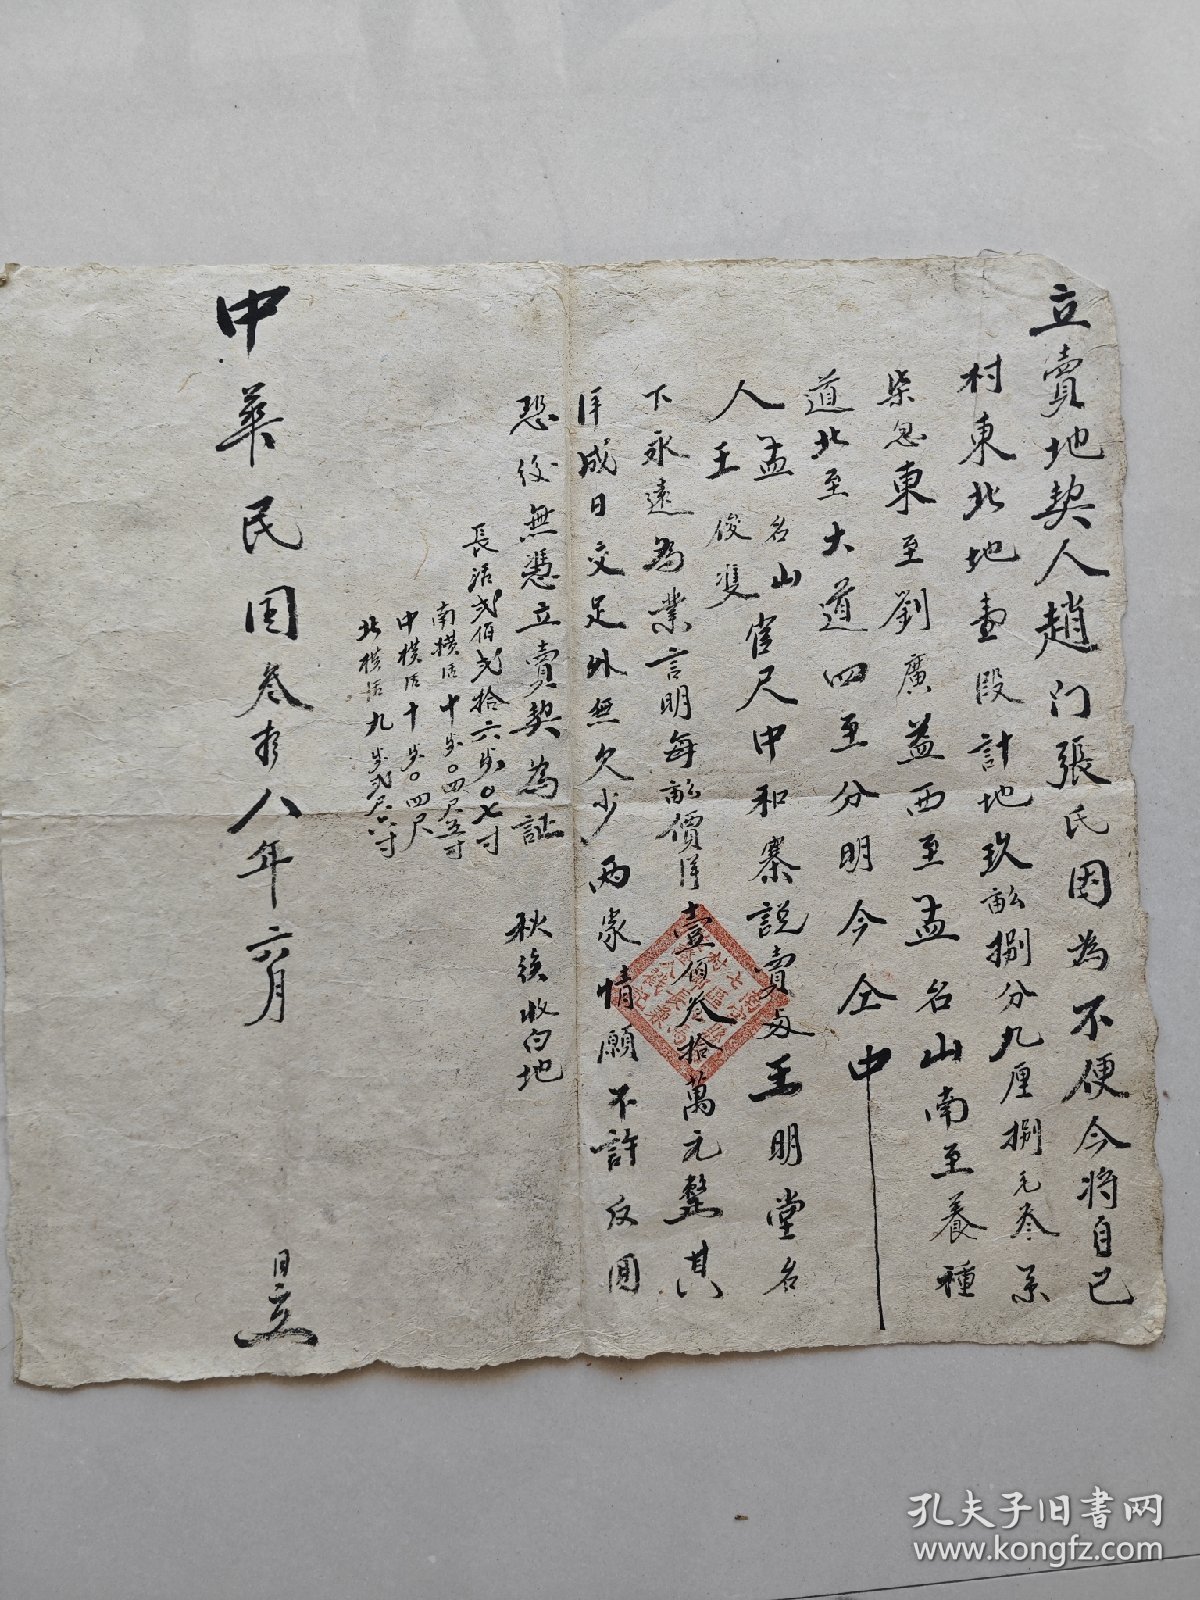 立賣地契人趙门張氏因為不便今將自己
村東北地壹段計地玖畝捌分九厘捌毛叁系
柒忽東至劉廣益西至孟名山南至養種
道北至大道四至分明今仝中
人孟名山
王俊雙
官尺中和寨説賣与王明堂名
下永遠為業言明每畝價洋壹佰叁拾萬元整其
洋成日交足外無欠少两家情願不許反囬
恐後無憑立賣契為証 秋後收白地
長活弍佰弍拾六步0七寸
南横活十步0四尺五寸
中横活十步0四尺
北横活九步弍尺六寸
中華民国叁拾八年六月 日立
孔夫子旧书网
www.kongfz.com